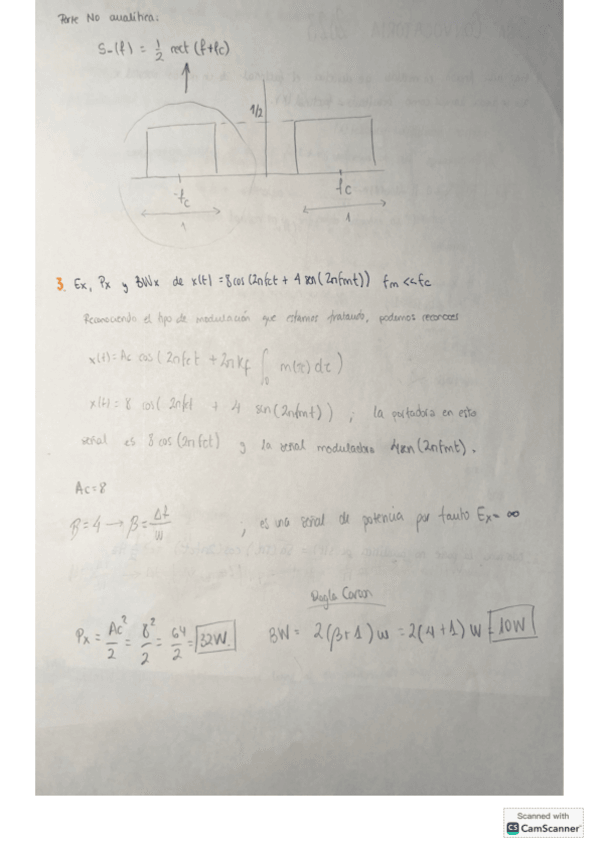 Parte No analítica:
S-(f) = 1/2 rect (f+fc)
1/2
fc
fc
1
1
3. Ex, Px y BWx de x(t) = 8 cos (2πfct + 4 sen (2πfmt)) fm << fc
Reconociendo el tipo de modulación que estamos tratando, podemos reconocer
x(t) = Ac cos (2πfct + 2πkf ∫₀ m(τ) dτ)
x(t) = 8 cos (2πfct + 4 sin (2πfmt)) ; la portadora en esta
señal es 8 cos (2πfct) y la señal moduladora 4 sen (2πfmt).
Ac = 8
β = 4 → β = Δf/W ; es una señal de potencia por tanto Ex = ∞
Regla Carson
Px = Ac²/2 = 8²/2 = 64/2 = 32W. BW = 2(β+1)W = 2(4+1)W = 10W
Scanned with
CS CamScanner